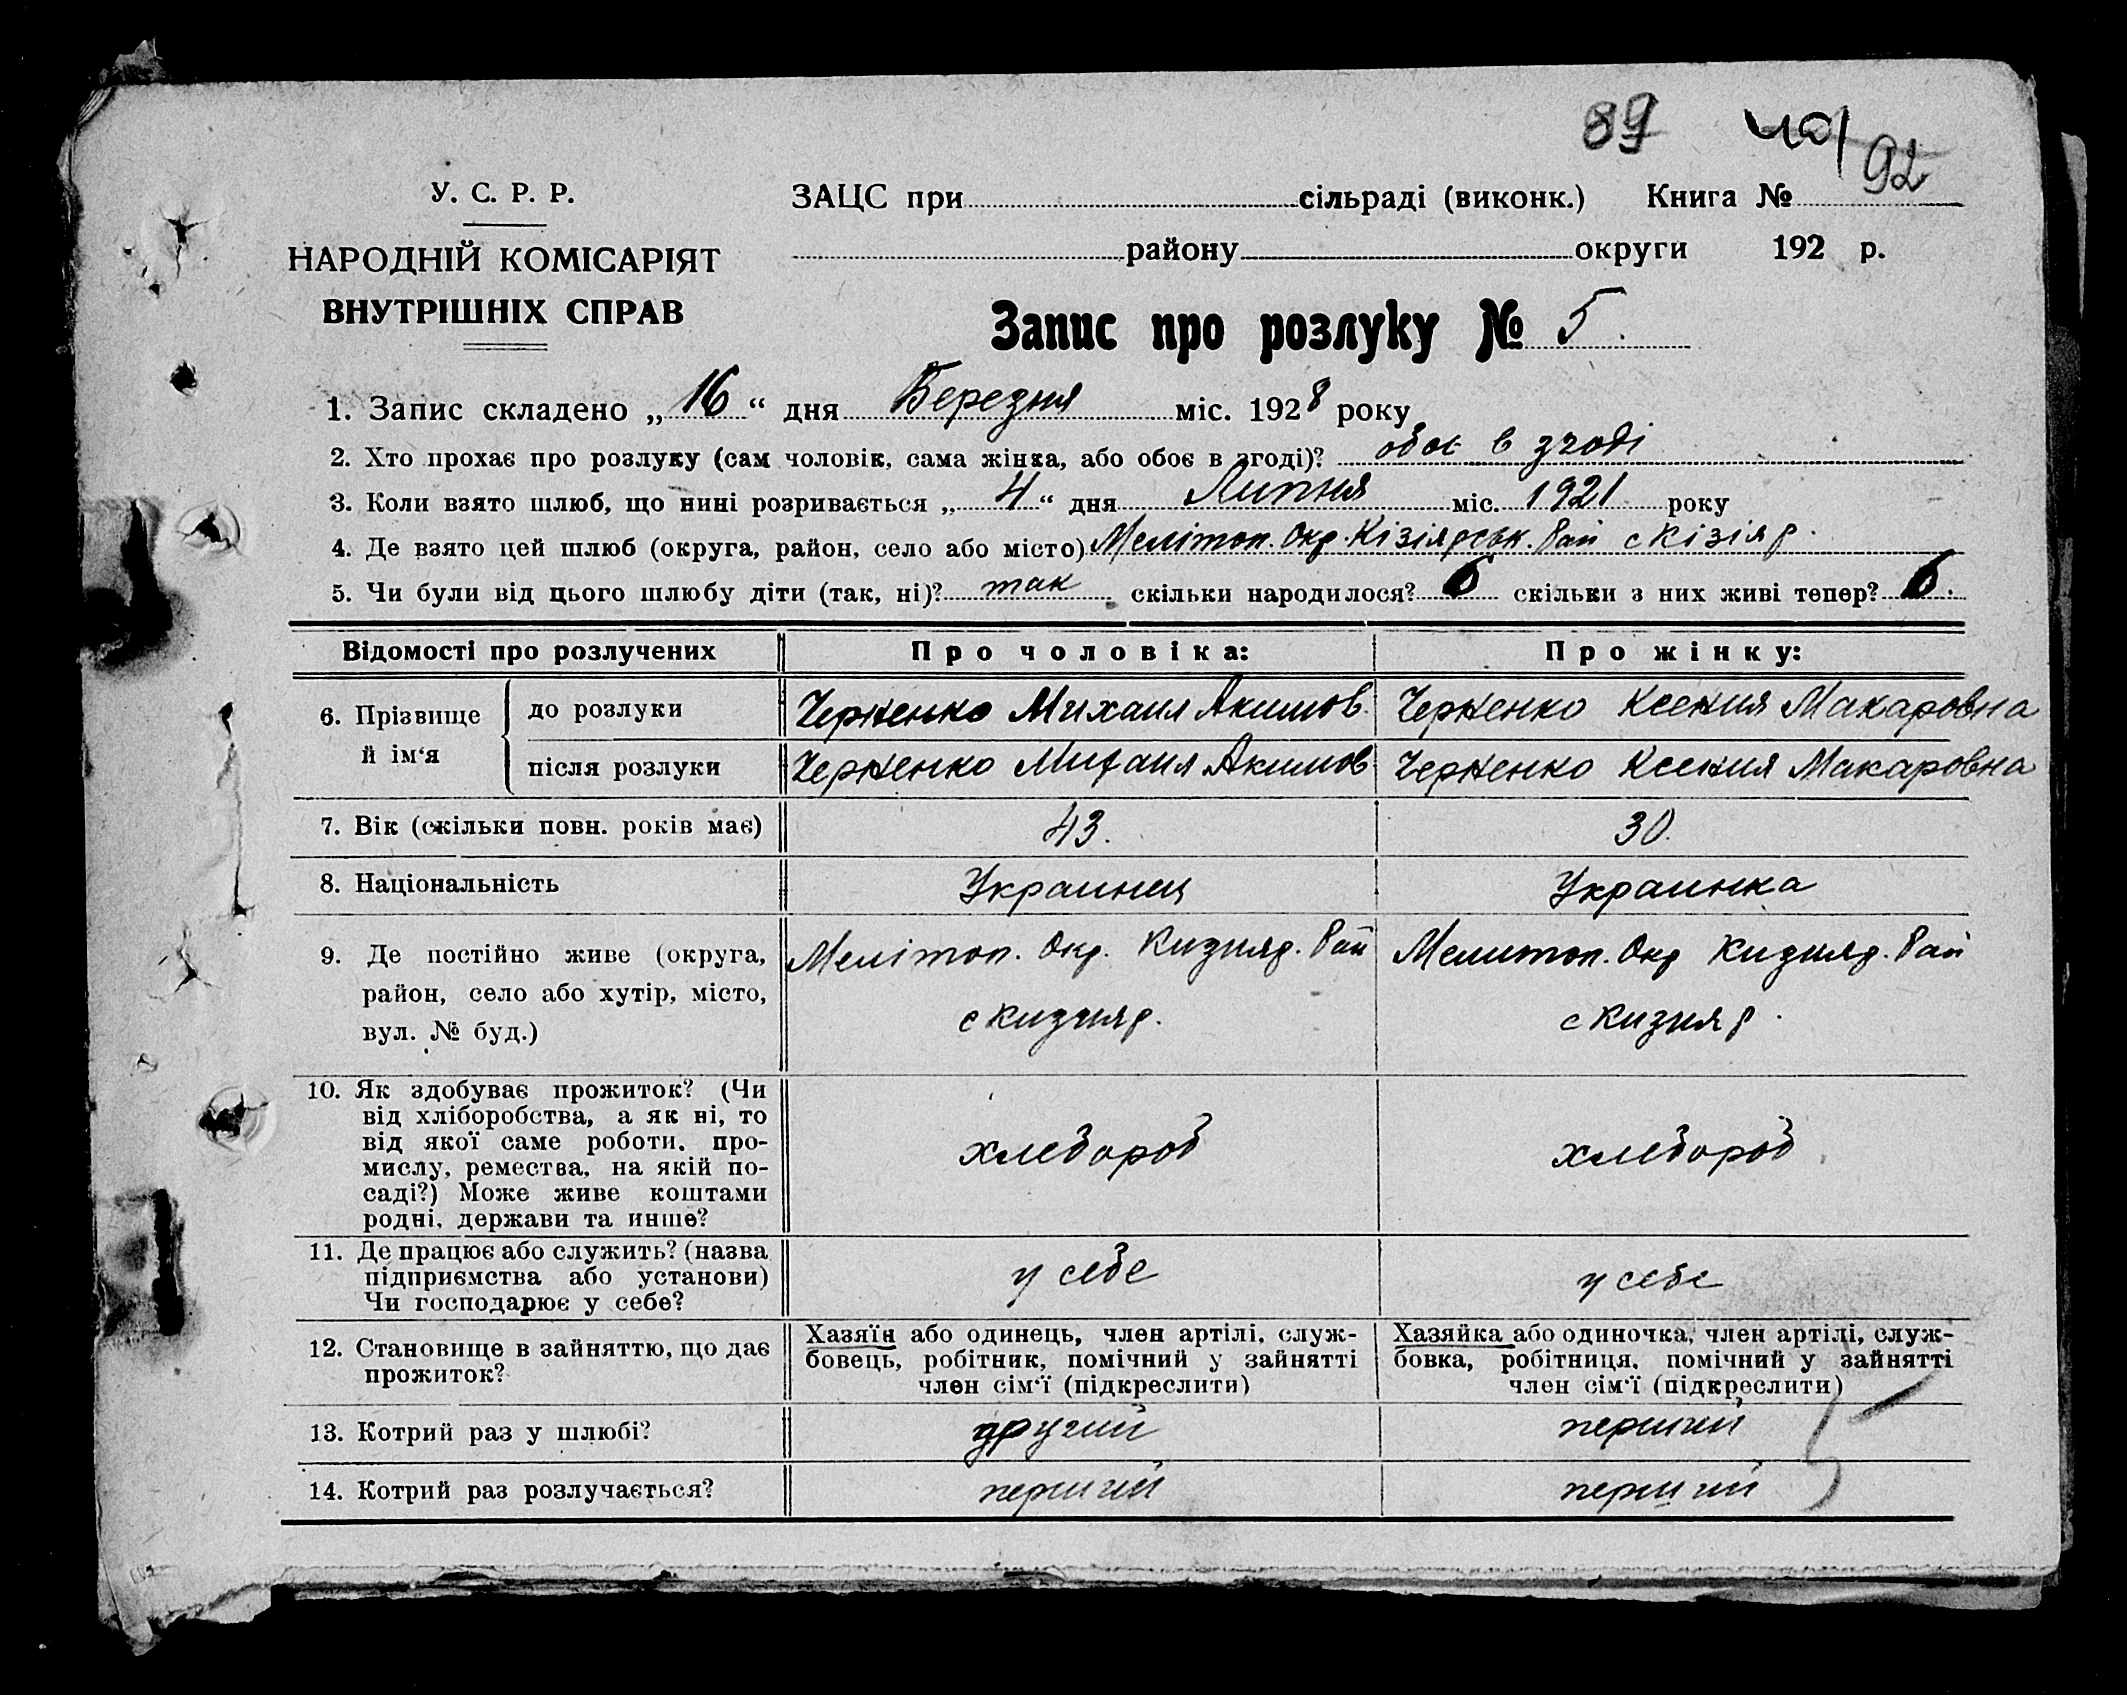 89 92
У. С. Р. Р.
ЗАЦС при сільраді (виконк.) Книга №
НАРОДНІЙ КОМІСАРІЯТ
району округи 192 р.
ВНУТРІШНІХ СПРАВ
Запис про розлуку № 5.
1. Запис складено „ 16 “ дня Березня міс. 1928 року
2. Хто прохає про розлуку (сам чоловік, сама жінка, або обоє в згоді)? обоє в згоді
3. Коли взято шлюб, що нині розривається „ 4 “ дня Липня міс. 1921 року
4. Де взято цей шлюб (округа, район, село або місто) Мелітоп. Окр. Кізіярськ. Рай с Кізіяр.
5. Чи були від цього шлюбу діти (так, ні)? так скільки народилося? 6 скільки з них живі тепер? 6.
Відомості про розлучених Про чоловіка: Про жінку:
6. Прізвище й ім‘я до розлуки Черненко Михаил Акимов. Черненко Ксения Макаровна
після розлуки Черненко Михаил Акимов Черненко Ксения Макаровна
7. Вік (скільки повн. років має) 43. 30.
8. Національність Украинец Украинка
9. Де постійно живе (округа, Мелітоп. Окр. Кизияр. Рай Мелитоп. Окр Кизияр. Рай
район, село або хутір, місто, с Кизияр. с Кизияр.
вул. № буд.)
10. Як здобуває прожиток? (Чи
від хліборобства, а як ні, то
від якої саме роботи, про-
мислу, ремества, на якій по- хлебороб хлебороб
саді?) Може живе коштами
родні, держави та инше?
11. Де працює або служить? (назва
підприємства або установи) у себе у себе
Чи господарює у себе?
12. Становище в зайняттю, що дає Хазяїн або одинець, член артілі, служ- Хазяйка або одиночка, член артілі, служ-
прожиток? бовець, робітник, помічний у зайнятті бовка, робітниця, помічний у зайнятті
член сім‘ї (підкреслити) член сім‘ї (підкреслити)
13. Котрий раз у шлюбі? другий перший
14. Котрий раз розлучається? перший перший